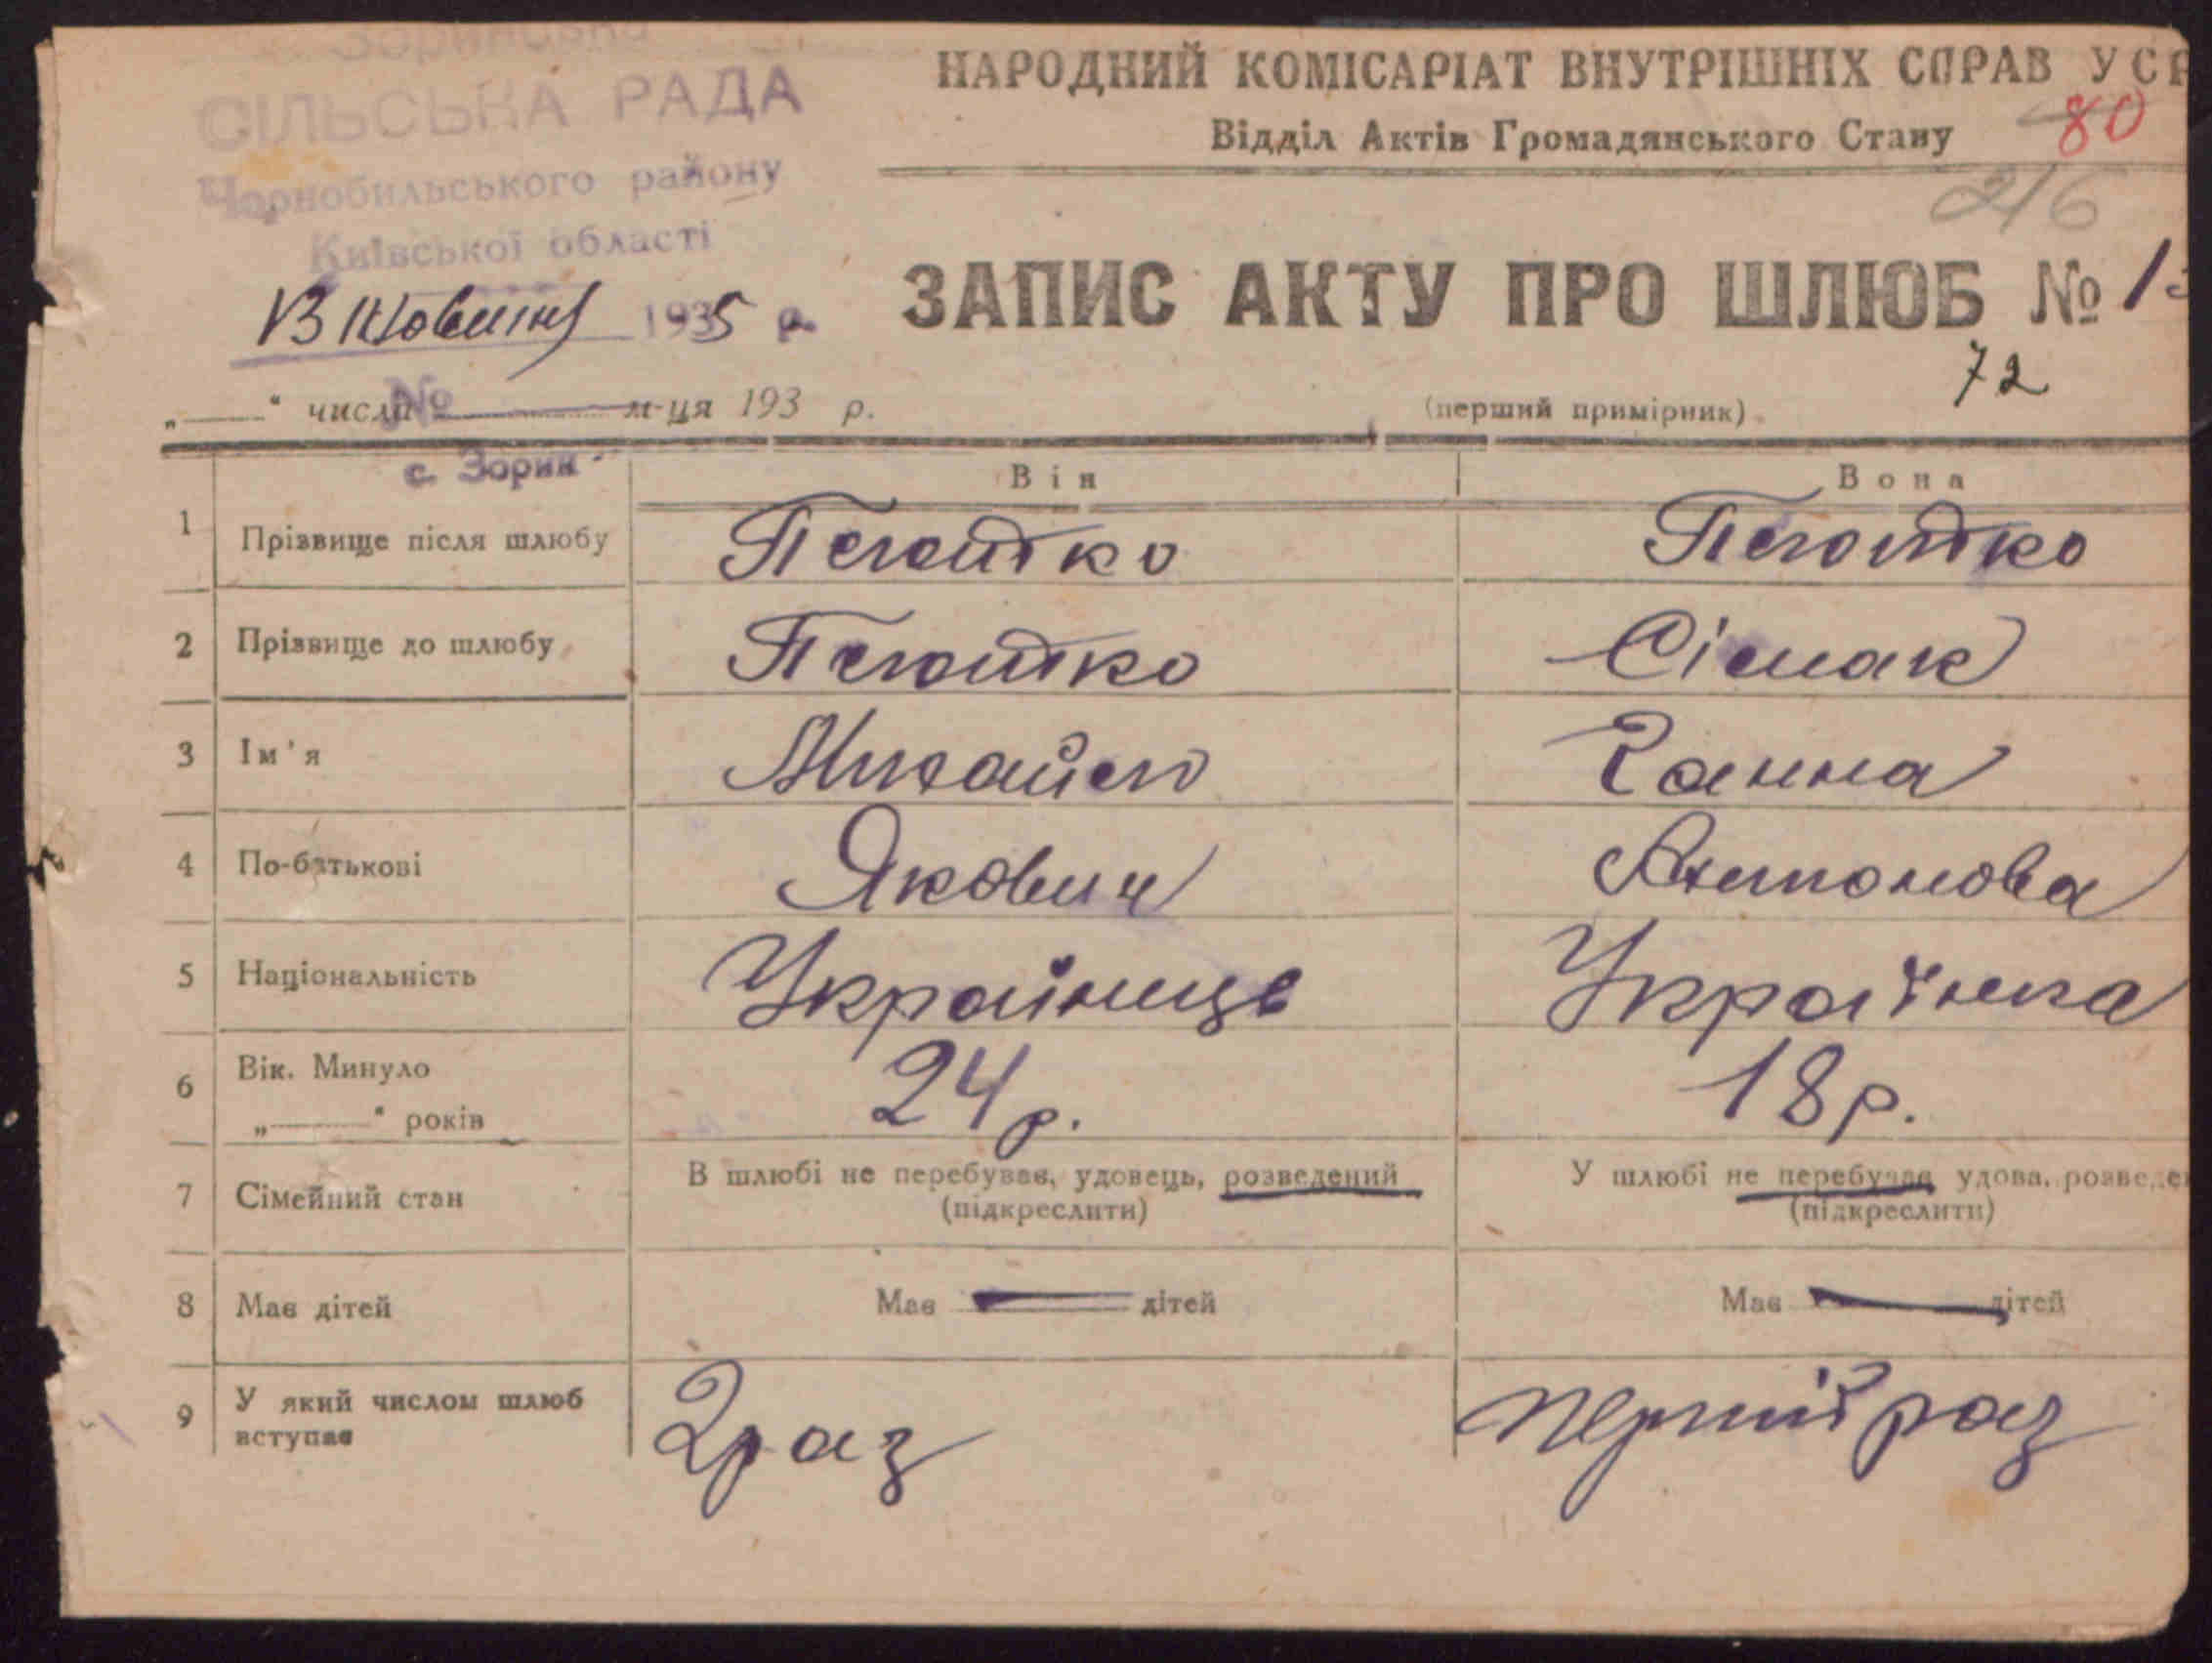 Зоринська
СІЛЬСЬКА РАДА
Чорнобильського району
Київської області
13 Жовтня 1935 р.
№
с. Зорин
НАРОДНИЙ КОМІСАРІАТ ВНУТРІШНІХ СПРАВ УСР
Відділ Актів Громадянського Стану
80
216
ЗАПИС АКТУ ПРО ШЛЮБ № 13
72
„——“ числа м-ця 193 р. (перший примірник)
Він Вона
1 Прізвище після шлюбу
2 Прізвище до шлюбу Сімак
3 Ім'я Михайло Ганна
4 По-батькові Якович Антонова
5 Національність Українець Українка
6 Вік. Минуло 24 р. 18 р.
„——“ років
7 Сімейний стан В шлюбі не перебував, удовець, розведений У шлюбі не перебувала удова, розведе
(підкреслити) (підкреслити)
8 Має дітей Має — дітей Має — дітей
9 У який числом шлюб вступає 2 раз перший раз